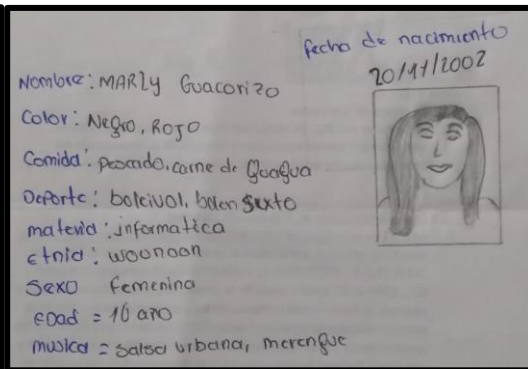 fecha de nacimiento
20/11/2002
Nombre: MARly Guacorizo
Color: Negro, Rojo
Comida: pescado, carne de Guagua
Deporte: bolcivol, balon sexto
materia: informatica
etnia: woonaan
Sexo femenina
edad = 16 año
musica = salsa urbana, merengue